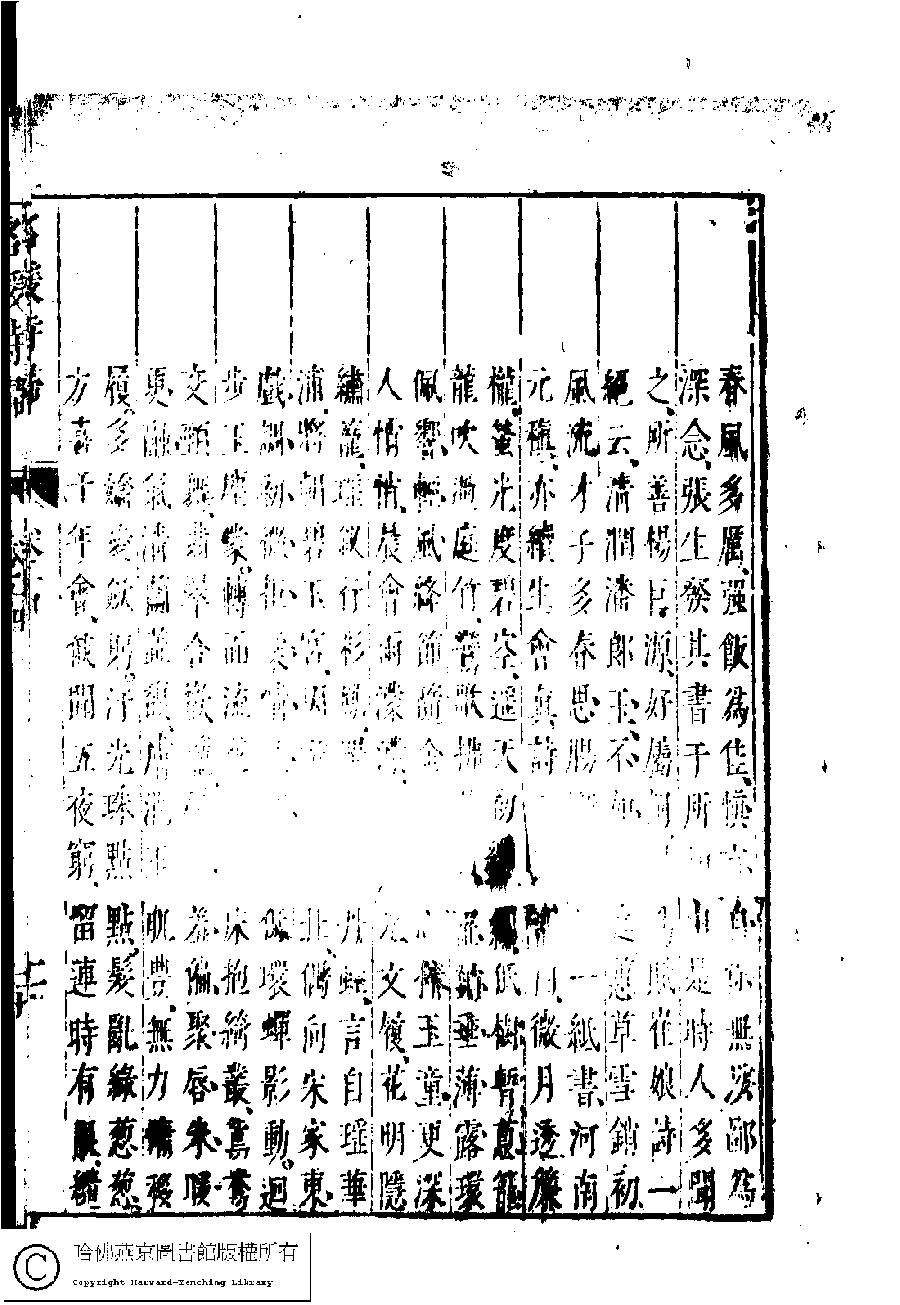 春風多厲、强飯為佳、慎自保無深鄙為
深念、張生發其書于所由是時人多聞
之、所善楊巨源、好屬詞賦崔娘詩一
絕云、清潤潘郎玉、不如蕙草雪銷初
風流才子多春思、腸一紙書、河南
元稹、亦續生會真詩曰、微月透簾
櫳、螢光度碧空、遙天初縹低樹暫蔥籠
龍吹過庭竹、鸞歌拂綃垂薄露環
佩響輕風、絳節隨金心捧玉童、更深
人悄悄、晨會雨濛濛光文履、花明隱
繡龍、瑤釵行彩鳳丹虹、言自瑤華
浦、將朝碧玉宮、因北、偶向宋家東、
戲調初微拒、柔情低環蟬影動、迴
步玉塵蒙、轉面流床抱綺叢、鴛鴦
交頸舞、翡翠合歡籠羞偏聚、唇朱暖
更融、氣清蘭蕊馥、膚潤玉肌豊、無力慵移
履、多嬌愛歛躬、汗光珠點點、髮亂綠葱葱
方喜千年會、俄聞五夜窮、留連時有限、繾
卷之四
哈佛燕京圖書館版權所有
Copyright Harvard-Yenching Library